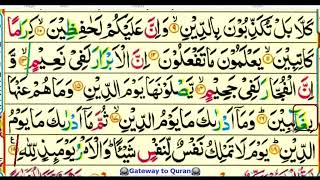 كَلَّا بَلْ تُكَذِّبُونَ بِالدِّينِ ۙ﴿۹﴾ وَإِنَّ عَلَيْكُمْ لَحَافِظِينَ ۙ﴿۱۰﴾ كِرَامًا
كَاتِبِينَ ۙ﴿۱۱﴾ يَعْلَمُونَ مَا تَفْعَلُونَ ﴿۱۲﴾ إِنَّ الْأَبْرَارَ لَفِي نَعِيمٍ ۚ﴿۱۳﴾ وَ
إِنَّ الْفُجَّارَ لَفِي جَحِيمٍ ۚ﴿۱۴﴾ يَصْلَوْنَهَا يَوْمَ الدِّينِ ﴿۱۵﴾ وَمَا هُمْ عَنْهَا
بِغَائِبِينَ ؕ﴿۱۶﴾ وَمَا أَدْرَاكَ مَا يَوْمُ الدِّينِ ۙ﴿۱۷﴾ ثُمَّ مَا أَدْرَاكَ مَا يَوْمُ
الدِّينِ ؕ﴿۱۸﴾ يَوْمَ لَا تَمْلِكُ نَفْسٌ لِنَفْسٍ شَيْئًا ؕ وَالْأَمْرُ يَوْمَئِذٍ لِلّٰهِ ﴿۱۹﴾
Gateway to Quran